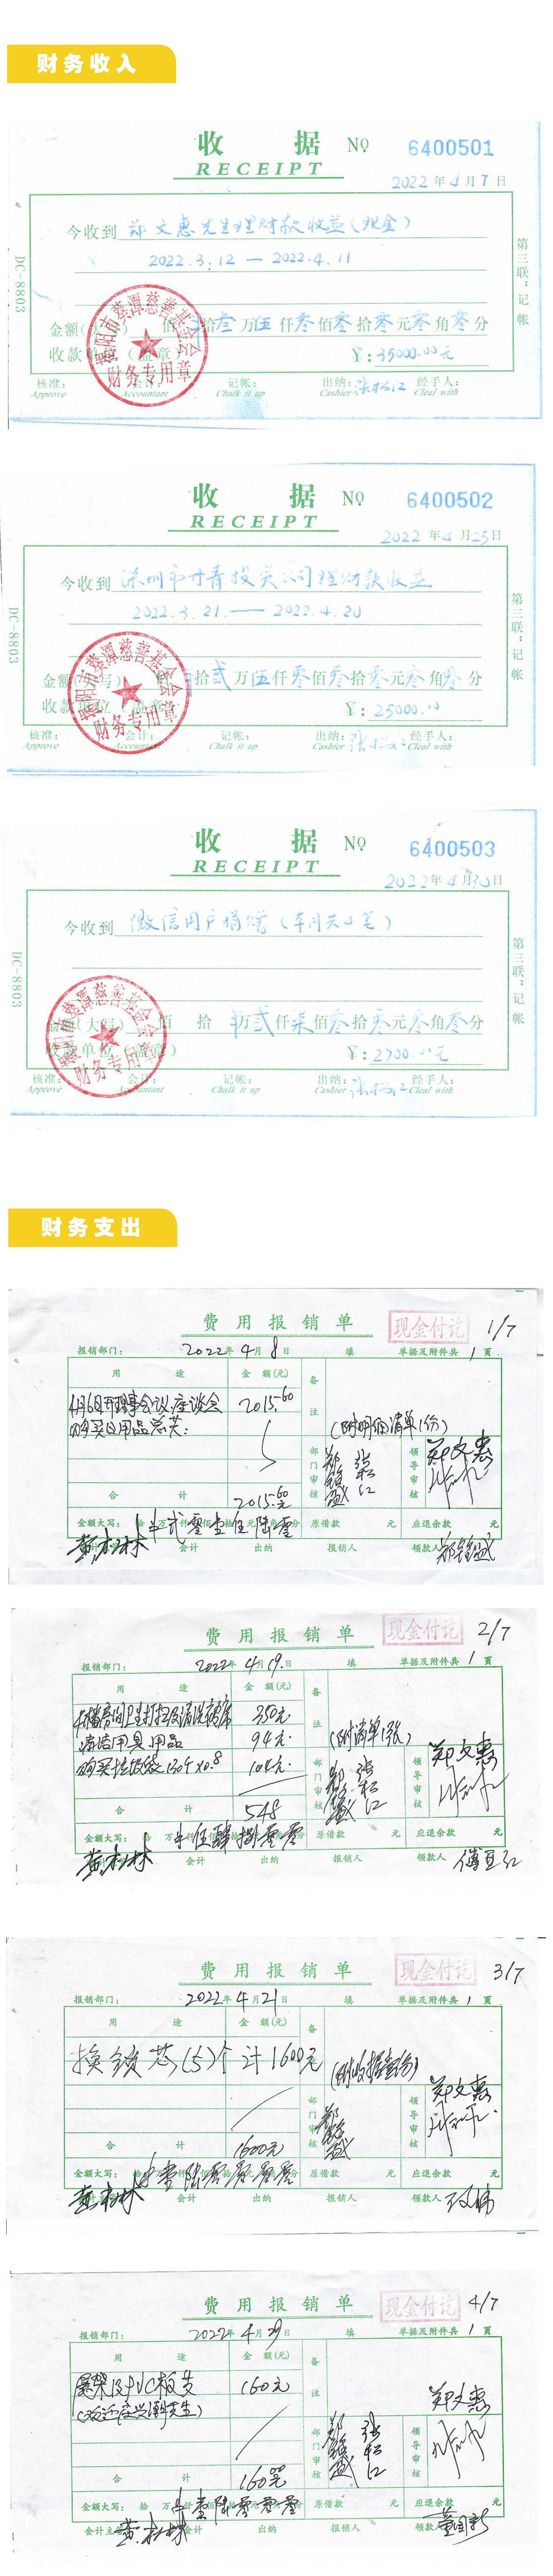 财务收入
收 据 № 6400501
RECEIPT
2022 年 4 月 7 日
今收到 郑文惠先生理财款收益(现金)
2022.3.12 — 2022.4.11
金额(大写) 佰 拾叁万伍仟零佰零拾零元零角零分
收款单位(盖章) ¥: 35000.00元
核准: 会计: 记帐: 出纳: 张松江 经手人:
Approve Accountant Chalk it up Cashier Cleal with
DC-8803
第三联:记帐
财务专用章
收 据 № 6400502
RECEIPT
2022 年 4 月 25 日
今收到 深圳市丹青投资公司理财款收益
2022.3.21. — 2022.4.20
金额(大写) 拾贰万伍仟零佰零拾零元零角零分
收款单位(盖章) ¥: 25000.00
核准: 会计: 记帐: 出纳: 经手人:
Approve Accountant Chalk it up Cashier Cleal with
DC-8803
第三联:记帐
财务专用章
收 据 № 6400503
RECEIPT
2022 年 4 月 30 日
今收到 微信用户捐赠(本月共4笔)
金额(大写) 佰 拾 万贰仟柒佰零拾零元零角零分
收款单位(盖章) ¥: 2700.00元
核准: 会计: 记帐: 出纳: 经手人:
Approve Accountant Chalk it up Cashier Cleal with
DC-8803
第三联:记帐
财务专用章
财务支出
费用报销单 现金付讫 1/7
报销部门: 2022年 4月 8日 填 单据及附件共 1 页
用 途 金 额(元) 备注
4月6日开理事会议座谈会 2015.60
购买日用品总共:
(附明细清单1份)
部门审核 领导审核 郑文惠
合 计 2015.60元
金额大写: 贰零壹伍陆零 原借款 元 应退余款 元
黄木林 会计 出纳 报销人 领款人
费用报销单 现金付讫 2/7
报销部门: 2022年 4月 19日 填 单据及附件共 1 页
用 途 金 额(元) 备注
350元
清洁用具用品 94元
购买垃圾袋 130个×0.8 104元
(附清单1张)
部门审核 领导审核 郑文惠
合 计 548
金额大写: 伍肆捌零零 原借款 元 应退余款 元
黄木林 会计 出纳 报销人 领款人
费用报销单 现金付讫 3/7
报销部门: 2022年 4月 21日 填 单据及附件共 1 页
用 途 金 额(元) 备
换锁芯(5)个计1600元
(附收据壹份)
部门审核 领导审核 郑文惠
合 计 1600元
金额大写: 壹陆零零零零 原借款 元 应退余款 元
黄木林 会计 出纳 报销人 领款人
费用报销单 现金付讫 4/7
报销部门: 2022年 4月 29日 填 单据及附件共 1 页
用 途 金 额(元) 备注
展架及PVC板费 160元
部门审核 领导审核 郑文惠
合 计 160元
金额大写: 拾 万 壹陆零零零 原借款 元 应退余款 元
会计主管 黄木林 会计 出纳 报销人 领款人